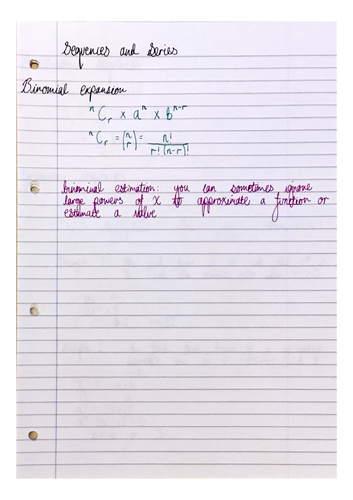 Sequences and Series
Binomial expansion
ⁿCᵣ × aⁿ × bⁿ⁻ʳ
ⁿCᵣ = (n r) = n! / r!(n-r)!
binomial estimation: you can sometimes ignore
large powers of x to approximate a function or
estimate a value